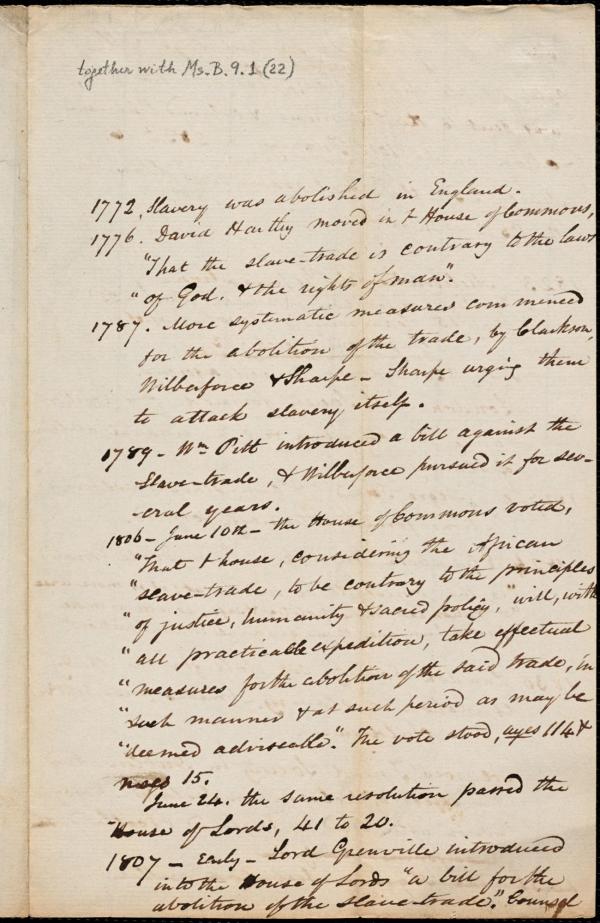 together with Ms.B.9.1 (22)
1772. Slavery was abolished in England.
1776. David Hartley moved in t House of Commons,
"That the slave-trade is contrary to the laws
"of God. & the rights of man".
1787. More systematic measures commenced
for the abolition of the trade, by Clackson,
Wilberforce & Sharpe - Sharpe urging them
to attack slavery itself.
1789 - Wm Pitt introduced a bill against the
Slave-trade, & Wilberforce pursued it for sev-
-eral years.
1806 - June 10th - the House of Commons voted,
"That t house, considering the African
"slave-trade, to be contrary to the principles
"of justice, humanity & sacred policy, "will, with
"all practicable expedition, take effectual
"measures for the abolition of the said trade, in
"such manner & at such period as may be
"deemed adviseable." The vote stood, ayes 114 &
noes 15.
June 24. the same resolution passed the
House of Lords, 41 to 20.
1807 - Early - Lord Grenville introduced
into the House of Lords "a bill for the
abolition of the slave-trade." Counsel